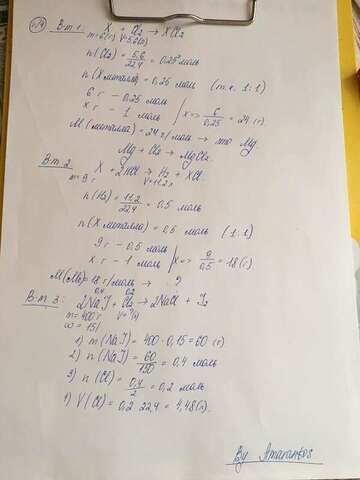 №4
В-т 1: X + Cl₂ → XCl₂
m=6(г) V=5,6(л)
n(Cl₂) = 5,6/22,4 = 0,25 моль
n(X металла) = 0,25 моль (т.к. 1:1)
6 г – 0,25 моль
x г – 1 моль | x => 6/0,25 = 24 (г)
M(металла) = 24 г/моль → это Mg
Mg + Cl₂ → MgCl₂
В-т 2: X + 2HCl → H₂ + XCl₂
m=9 г V=11,2 л
n(H₂) = 11,2/22,4 = 0,5 моль
n(X металла) = 0,5 моль (1:1)
9 г – 0,5 моль
x г – 1 моль | x => 9/0,5 = 18 (г)
M(Me) = 18 г/моль → ?
0,4 0,2
В-т 3: 2NaI + Cl₂ → 2NaCl + I₂
m=400 г V=?(л)
ω=15%
1) m(NaI) = 400·0,15 = 60 (г)
2) n(NaI) = 60/150 = 0,4 моль
3) n(Cl) = 0,4/2 = 0,2 моль
4) V(Cl) = 0,2·22,4 = 4,48 (л)
By Amarantos